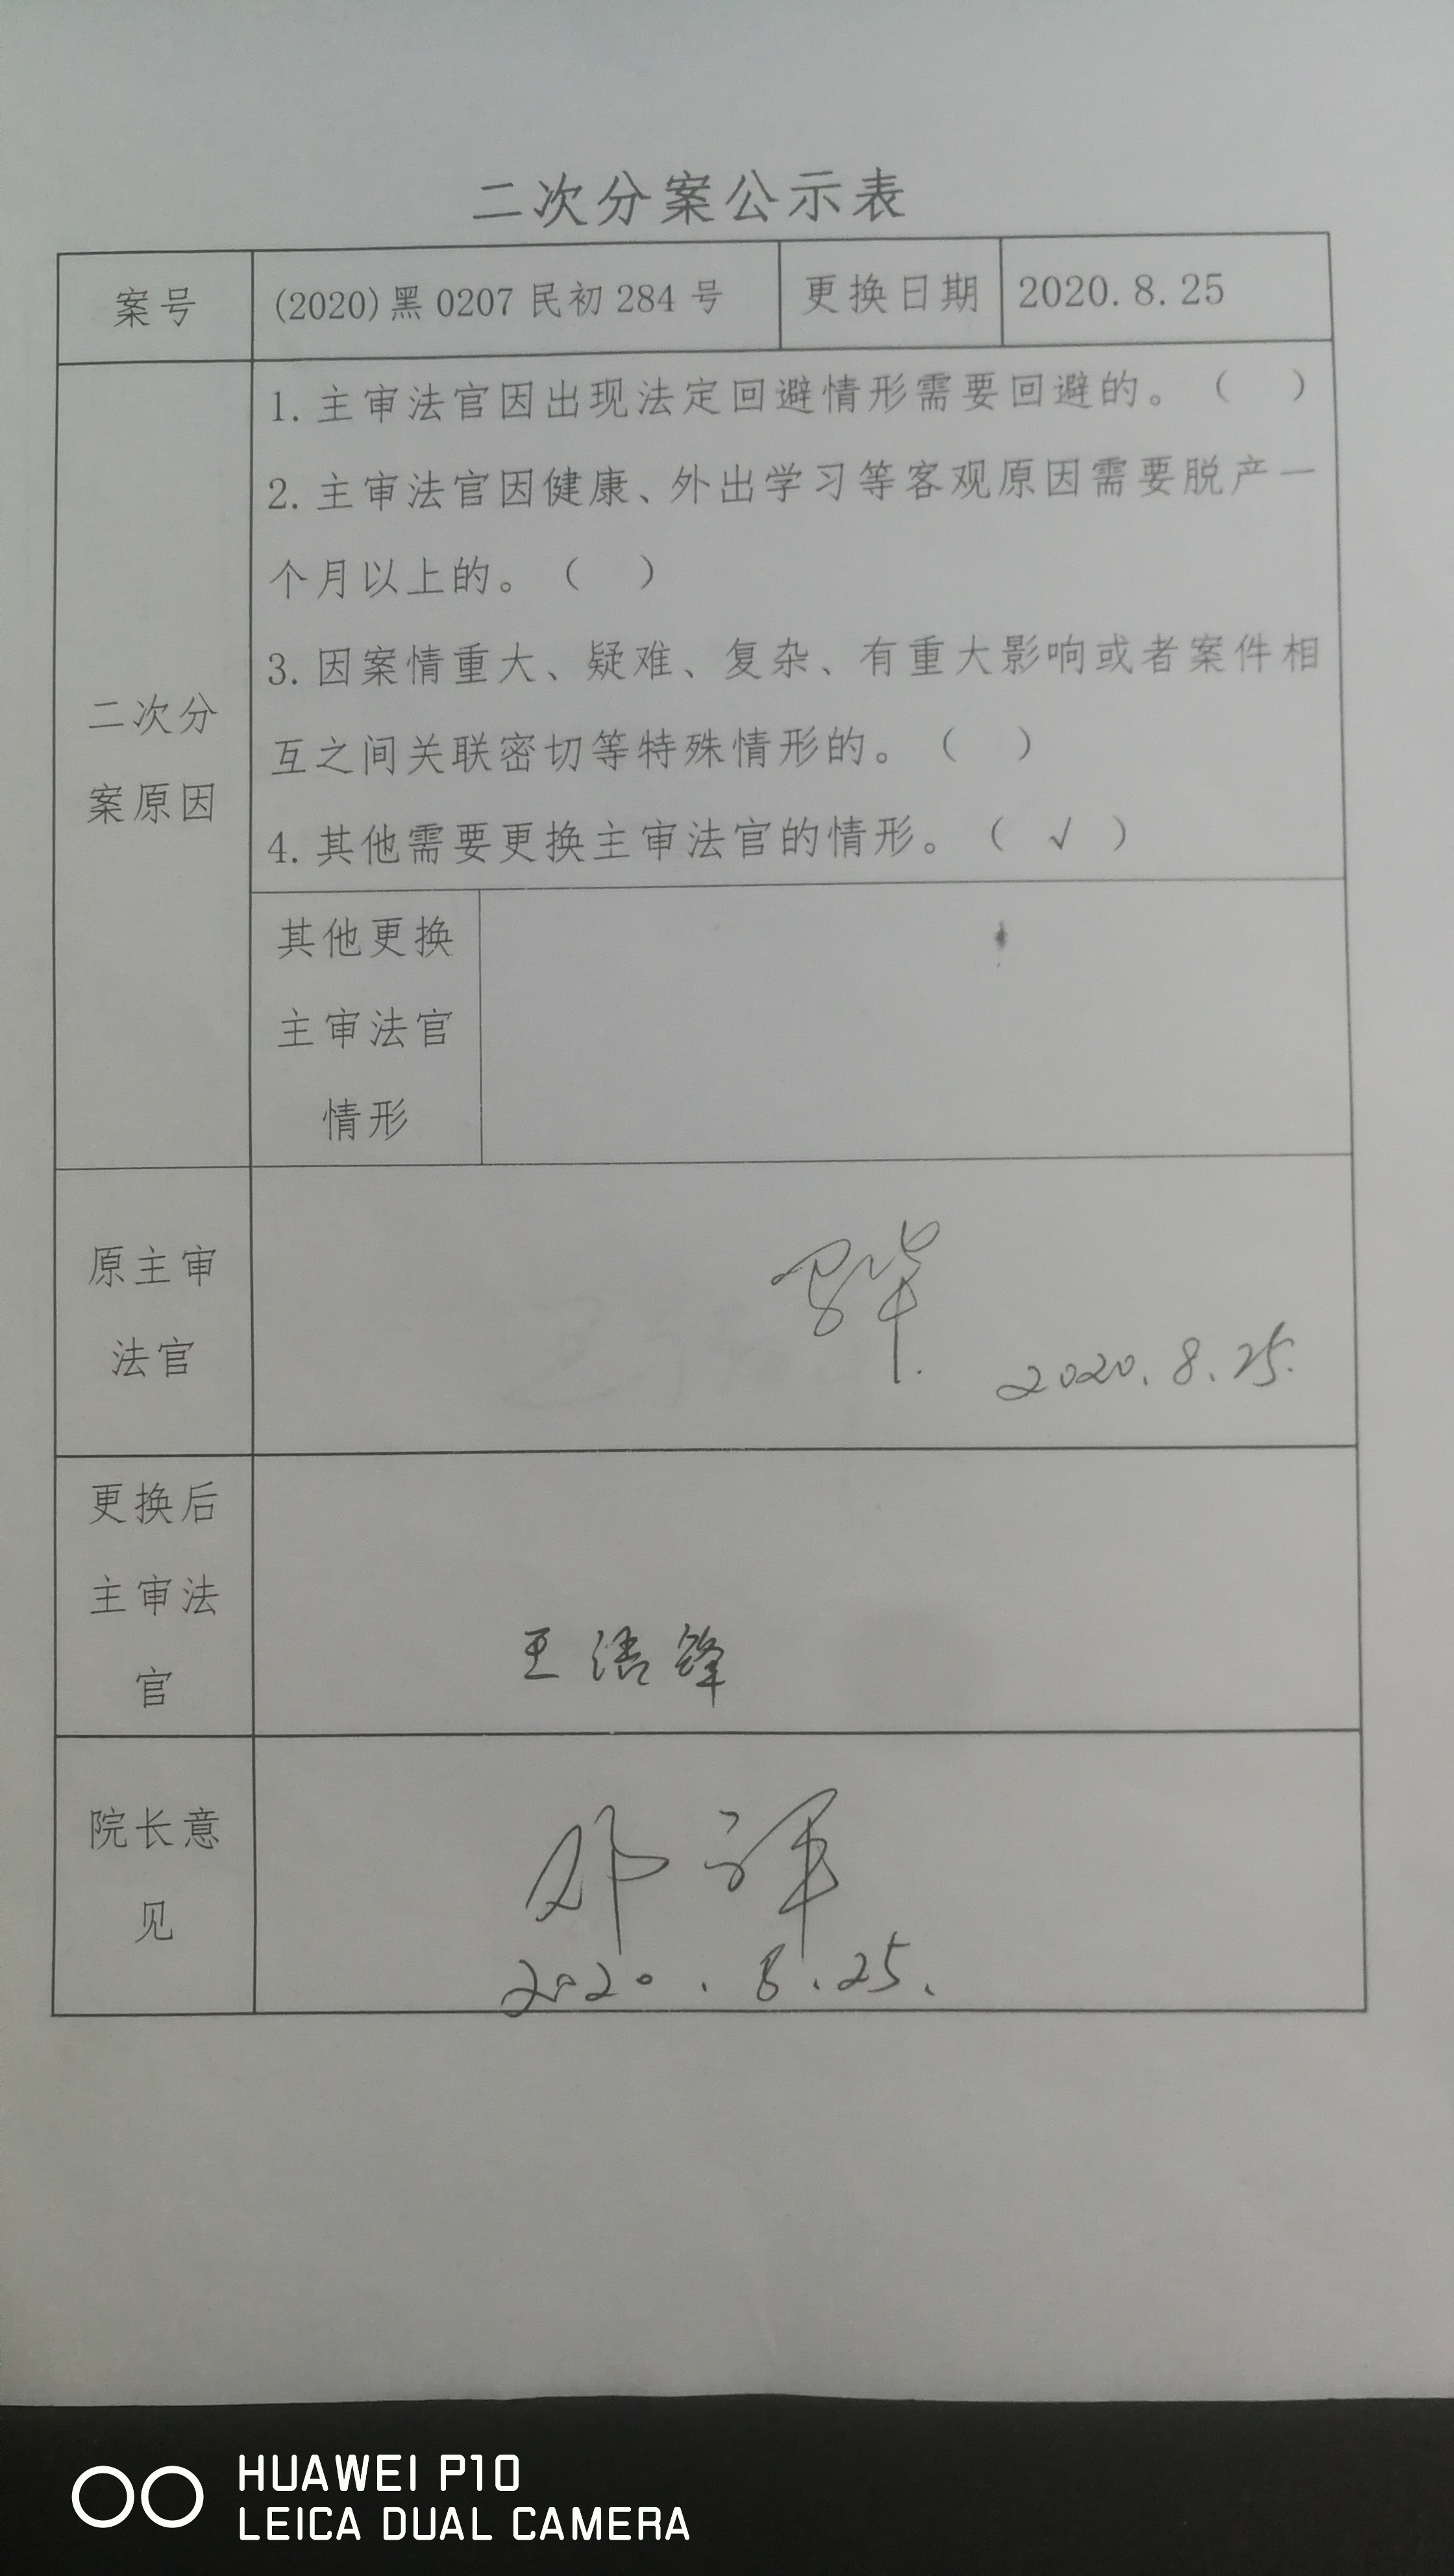 二次分案公示表
案号 (2020)黑 0207 民初 284 号 更换日期 2020.8.25
1.主审法官因出现法定回避情形需要回避的。（ ）
2.主审法官因健康、外出学习等客观原因需要脱产一
个月以上的。（ ）
3.因案情重大、疑难、复杂、有重大影响或者案件相
互之间关联密切等特殊情形的。（ ）
4.其他需要更换主审法官的情形。（ √ ）
二次分
案原因
其他更换
主审法官
情形
原主审
法官
2020.8.25.
更换后
主审法
官
王浩锋
院长意
见
2020.8.25.
HUAWEI P10
LEICA DUAL CAMERA